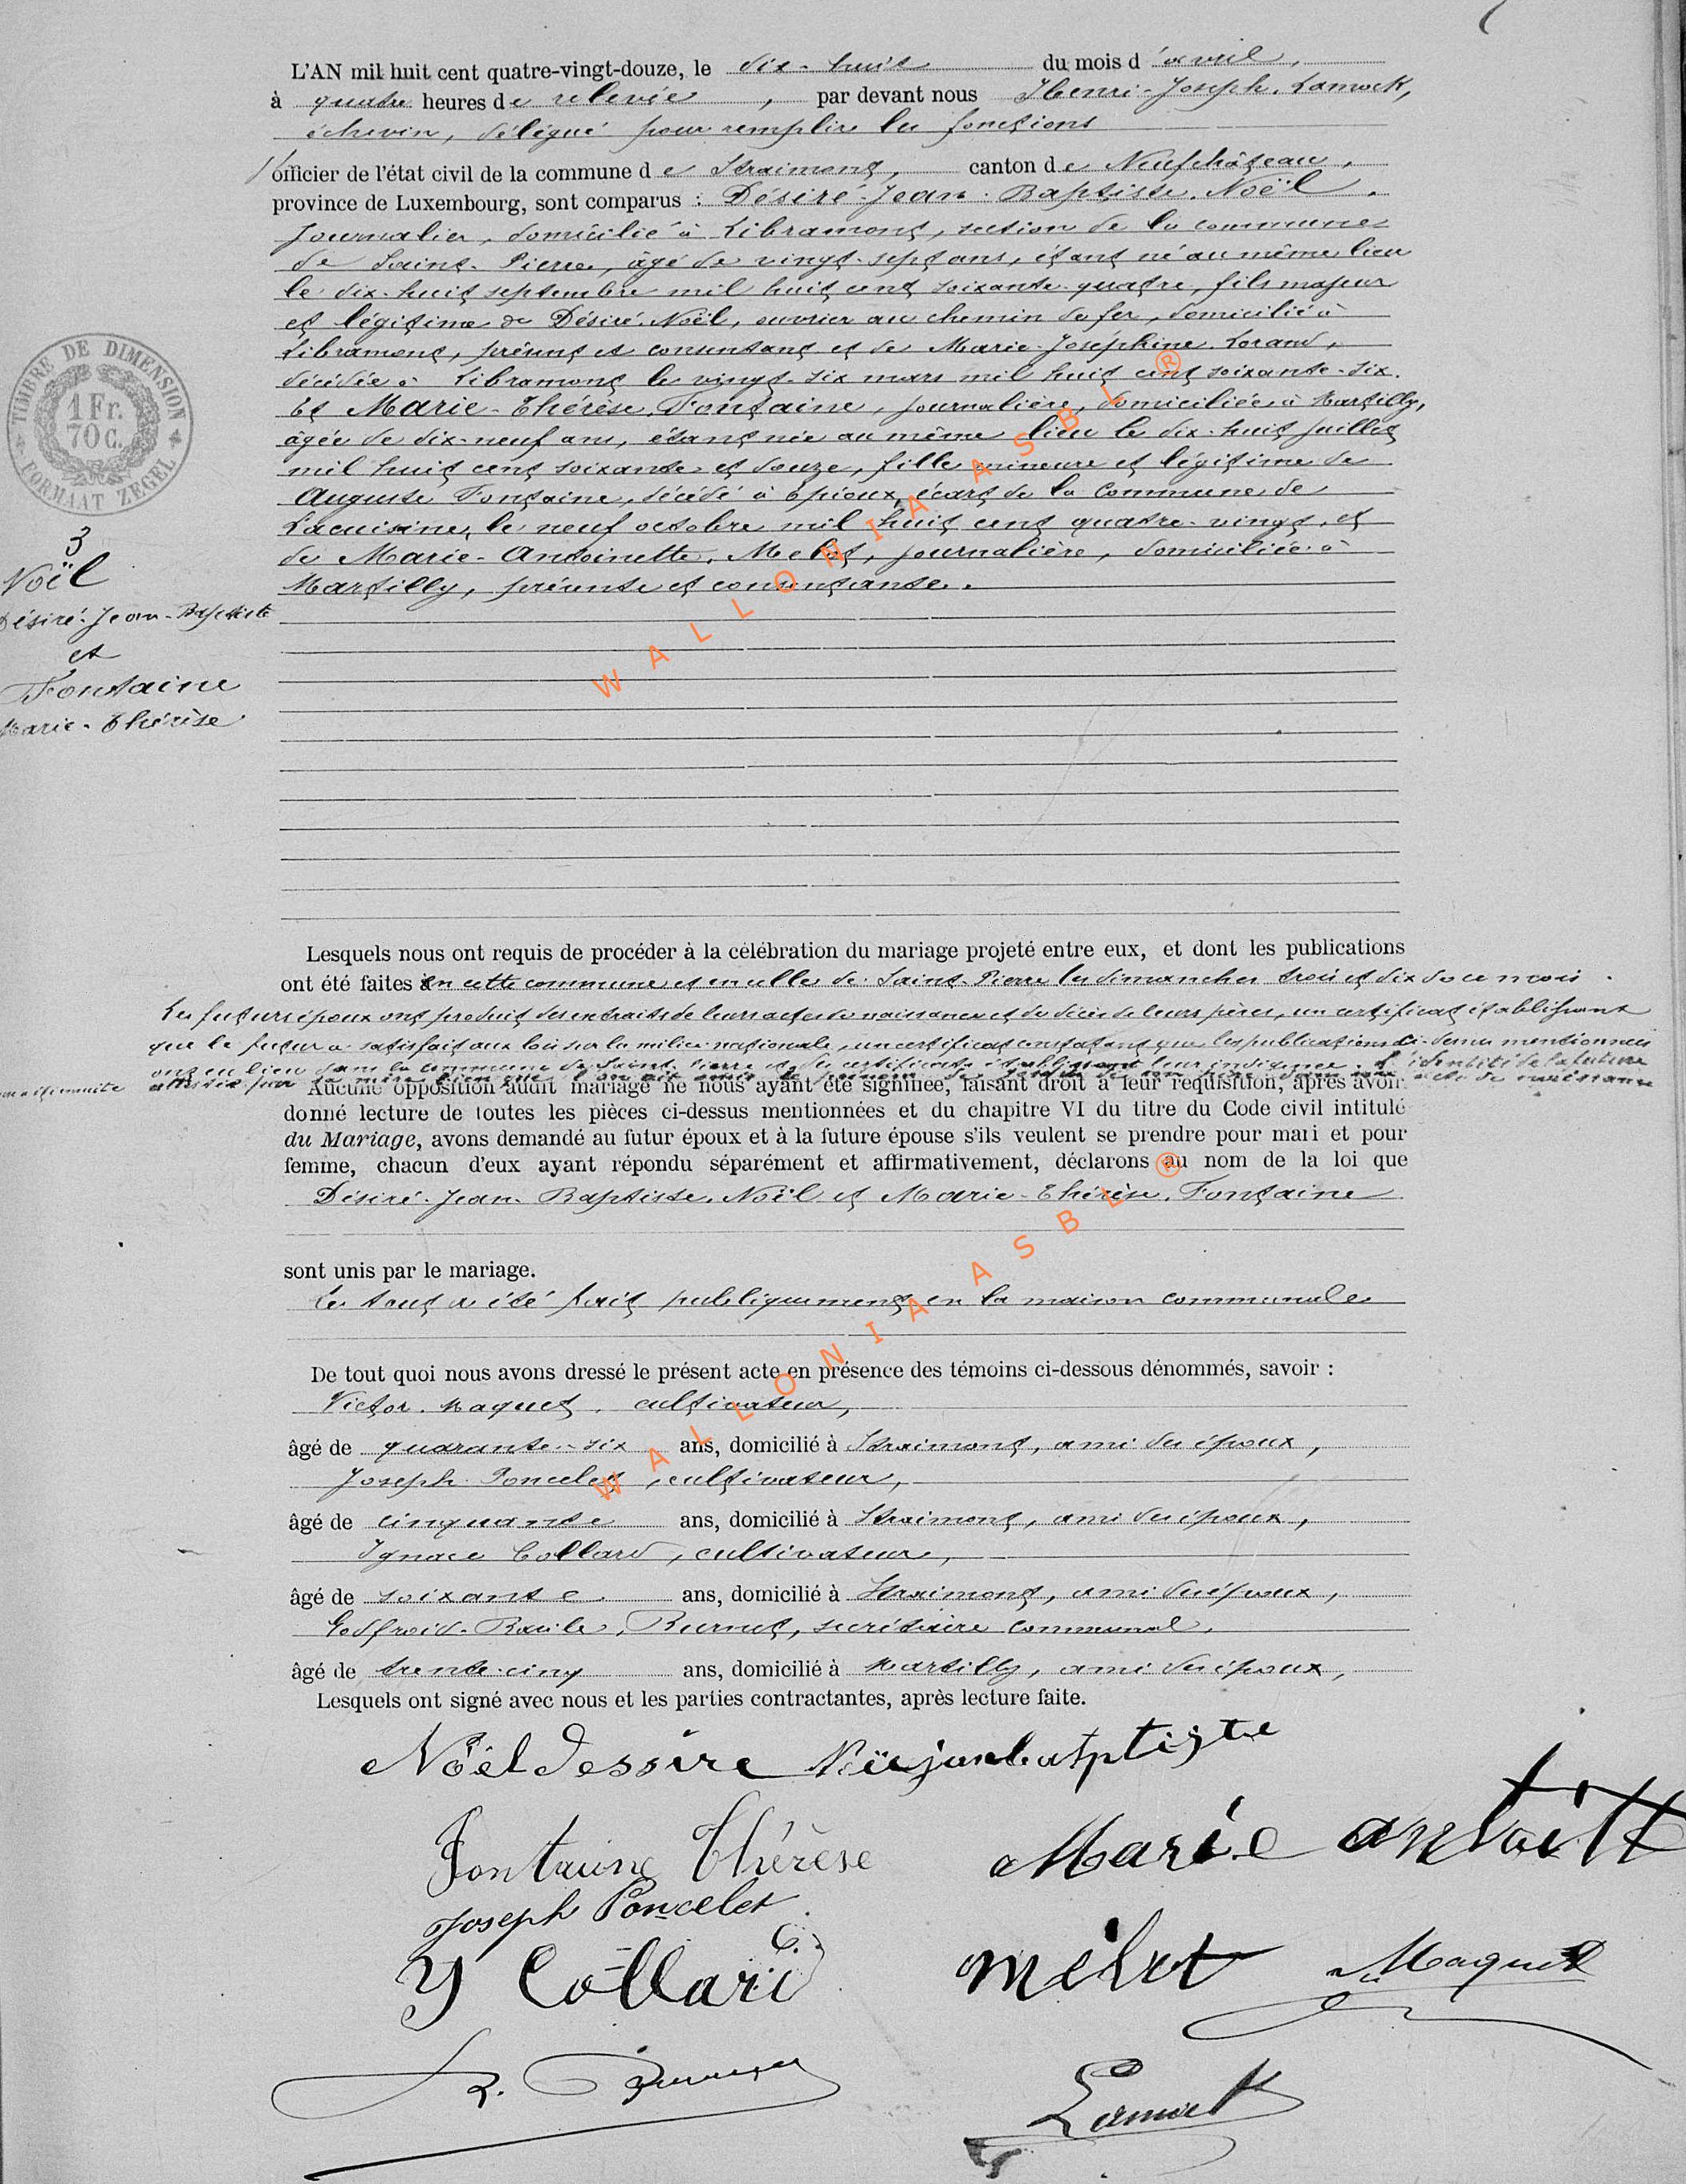 L'AN mil huit cent quatre-vingt-douze, le dix-huit du mois d'avril,
à quatre heures de relevée, par devant nous Henri-Joseph. Lamock,
échevin, délégué pour remplir les fonctions
d'officier de l'état civil de la commune de Straimont, canton de Neufchâteau,
province de Luxembourg, sont comparus : Désiré-Jean-Baptiste. Noël,
Journalier, domicilié à Libramont, section de la commune
de Saint-Pierre, âgé de vingt-sept ans, étant né au même lieu
le dix-huit septembre mil huit cent soixante-quatre, fils majeur
et légitime de Désiré. Noël, ouvrier au chemin de fer, domicilié à
Libramont, présent et consentant et de Marie-Joséphine. Lorand,
décédée à Libramont le vingt-six mars mil huit cent soixante-six.
Et Marie-Thérèse. Fontaine, journalière, domiciliée à Martilly,
âgée de dix-neuf ans, étant née au même lieu le dix-huit juillet
mil huit cent soixante et douze, fille mineure et légitime de
Auguste Fontaine, décédé à Epioux, écart de la Commune de
Lacuisine, le neuf octobre mil huit cent quatre-vingt, et
de Marie-Antoinette. Melot, journalière, domiciliée à
Martilly, présente et consentante.
TIMBRE DE DIMENSION
1 Fr.
70 C.
FORMAAT ZEGEL
3
Noël
Désiré-Jean-Baptiste
et
Fontaine
Marie-Thérèse
Lesquels nous ont requis de procéder à la célébration du mariage projeté entre eux, et dont les publications
ont été faites en cette commune et en celle de Saint-Pierre les dimanches trois et dix de ce mois.
Les futurs époux ont produit des extraits de leurs actes de naissance et de décès de leurs pères, un certificat établissant
que le futur a satisfait aux lois sur la milice nationale, un certificat constatant que les publications ci-dessus mentionnées
ont eu lieu dans la commune de Saint-Pierre et des certificats établissant leur indigence. L'identité de la future
attestée par la mère bien que acte de naissance
Aucune opposition audit mariage ne nous ayant été signifiée, faisant droit à leur réquisition, après avoir
donné lecture de toutes les pièces ci-dessus mentionnées et du chapitre VI du titre du Code civil intitulé
du Mariage, avons demandé au futur époux et à la future épouse s'ils veulent se prendre pour mari et pour
femme, chacun d'eux ayant répondu séparément et affirmativement, déclarons au nom de la loi que
Désiré-Jean-Baptiste. Noël et Marie-Thérèse. Fontaine
sont unis par le mariage.
Le tout a été fait publiquement en la maison communale
De tout quoi nous avons dressé le présent acte en présence des témoins ci-dessous dénommés, savoir :
Victor. Maquet, cultivateur,
âgé de quarante-six ans, domicilié à Straimont, ami des époux,
Joseph Poncelet, cultivateur,
âgé de cinquante ans, domicilié à Straimont, ami des époux,
Ignace Collard, cultivateur,
âgé de soixante ans, domicilié à Straimont, ami des époux,
Godfroid- Burnet, secrétaire communal,
âgé de trente-cinq ans, domicilié à Martilly, ami des époux,
Lesquels ont signé avec nous et les parties contractantes, après lecture faite.
Noël dessire
Fontaine Thérèse Marie antoitt
Joseph Poncelet
Y Collard melot Maquet
Lamock
WALLONIA ASBL ®
WALLONIA ASBL ®